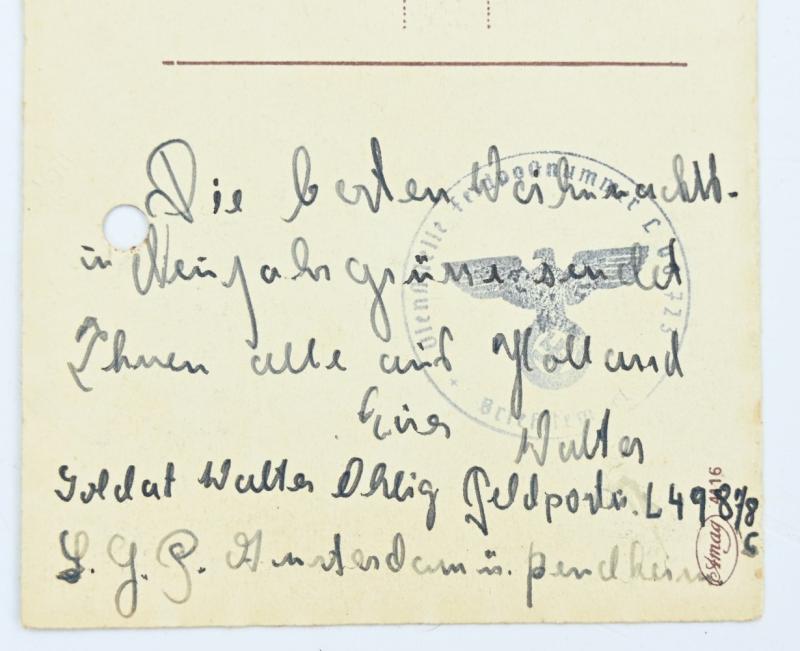 Die besten Weihnachts-
u Neujahrsgrüsse sendet
Ihnen alle aus Holland
Euer Walter
Soldat Walter Ohlig Feldpostn. L 49 878
L. G. P. Amsterdam ü.
Dienststelle Feldpostnummer L
Amag 4416